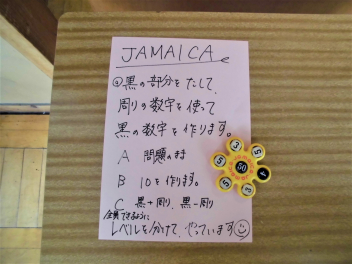 JAMAICA
④黒の部分をたして、
周りの数字を使って
黒の数字を作ります。
A 問題のまま
B 10を作ります。
C 黒+周り、黒-周り
全員できるように
レベルを分けて、やっています
3
5
5
50
4
5
2